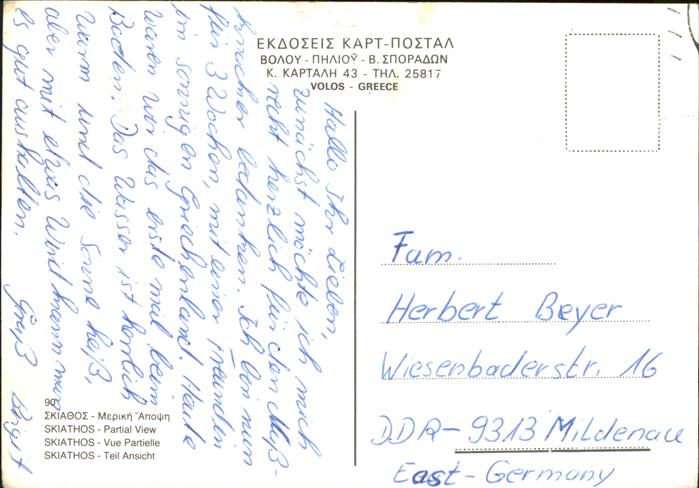 ΕΚΔΟΣΕΙΣ ΚΑΡΤ-ΠΟΣΤΑΛ
ΒΟΛΟΥ - ΠΗΛΙΟΥ - Β. ΣΠΟΡΑΔΩΝ
Κ. ΚΑΡΤΑΛΗ 43 - ΤΗΛ. 25817
VOLOS - GREECE
Hallo Ihr Lieben,
zunächst möchte ich mich
recht herzlich für den
bedanken. Ich bin nun
für 3 Wochen, mit einer Freundin
im sonnigen Griechenland. Heute
waren wir das erste mal beim
Baden. Das Wasser ist herrlich
warm und die Sonne heiß,
aber mit etwas Wind kann man
es gut aushalten.
Gruß Birgit
Fam.
Herbert Beyer
Wiesenbaderstr. 16
DDR-9313 Mildenau
East-Germany
90
ΣΚΙΑΘΟΣ - Μερική Ἄποψη
SKIATHOS - Partial View
SKIATHOS - Vue Partielle
SKIATHOS - Teil Ansicht